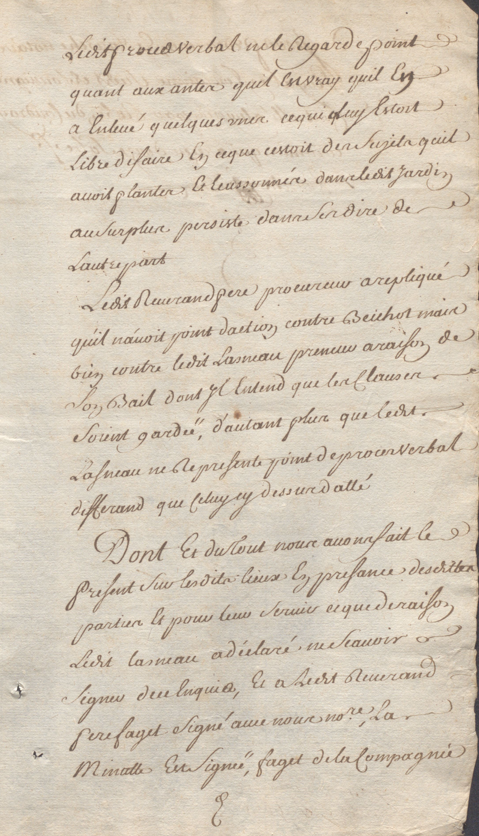 Ledit proces verbal ne le Regarde point
quant aux antes quil Envray quil En
a Enlevé quelques unes ceque luy Estoit
Libre de faire En ceque cestoit des Sujets quil
avoit planter Et Eussonnés dans ledit Jardin
au Surplus persiste dans Ses dire de
Lautre part
Ledit Reverand pere procureur a repliqué
qu'il n'avoit point daction contre Beichot mais
bien contre ledit Lasneau preneur a raison de
Son Bail dont Jl Entend que les Clauses
Soient gardéés, d'autant plus que ledit
Lasneau ne Represente point de proces verbal
differand que Celuy cy dessus dallé
Dont Et du tout nous avons fait le
present Sur lesdits lieux En presance desdittes
parties Et pour leur Servir ceque de raison
Ledit lasneau a déclaré ne Scavoir
Signer de ce Enquis, Et a Ledit Reverand
pere faget Signé avec nous nore, La
Minutte Est Signéé, faget de la Compagnie